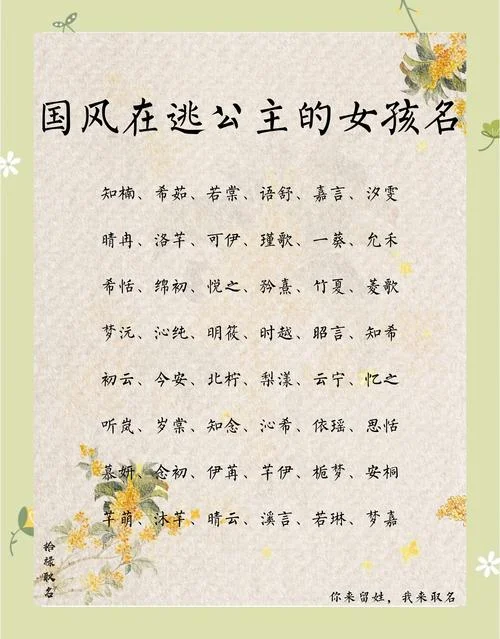 国风在逃公主的女孩名
知楠、希茹、若棠、语舒、嘉言、汐雯
晴冉、洛芊、可伊、瑾歌、一葵、允禾
希恬、绵初、悦之、矜熹、竹夏、菱歌
梦沅、沁纯、明筱、时越、昭言、知希
初云、今安、北柠、梨漾、云宁、忆之
听岚、岁棠、知念、沁希、依瑶、思恬
慕妍、念初、伊苒、芊伊、栀梦、安桐
芊萌、沐芊、晴云、溪言、若琳、梦嘉
拾禄取名
你来留姓，我来取名